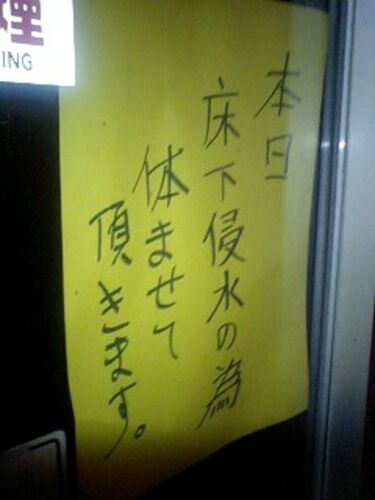 本日
床下侵水の為
休ませて
頂きます。
理
ING